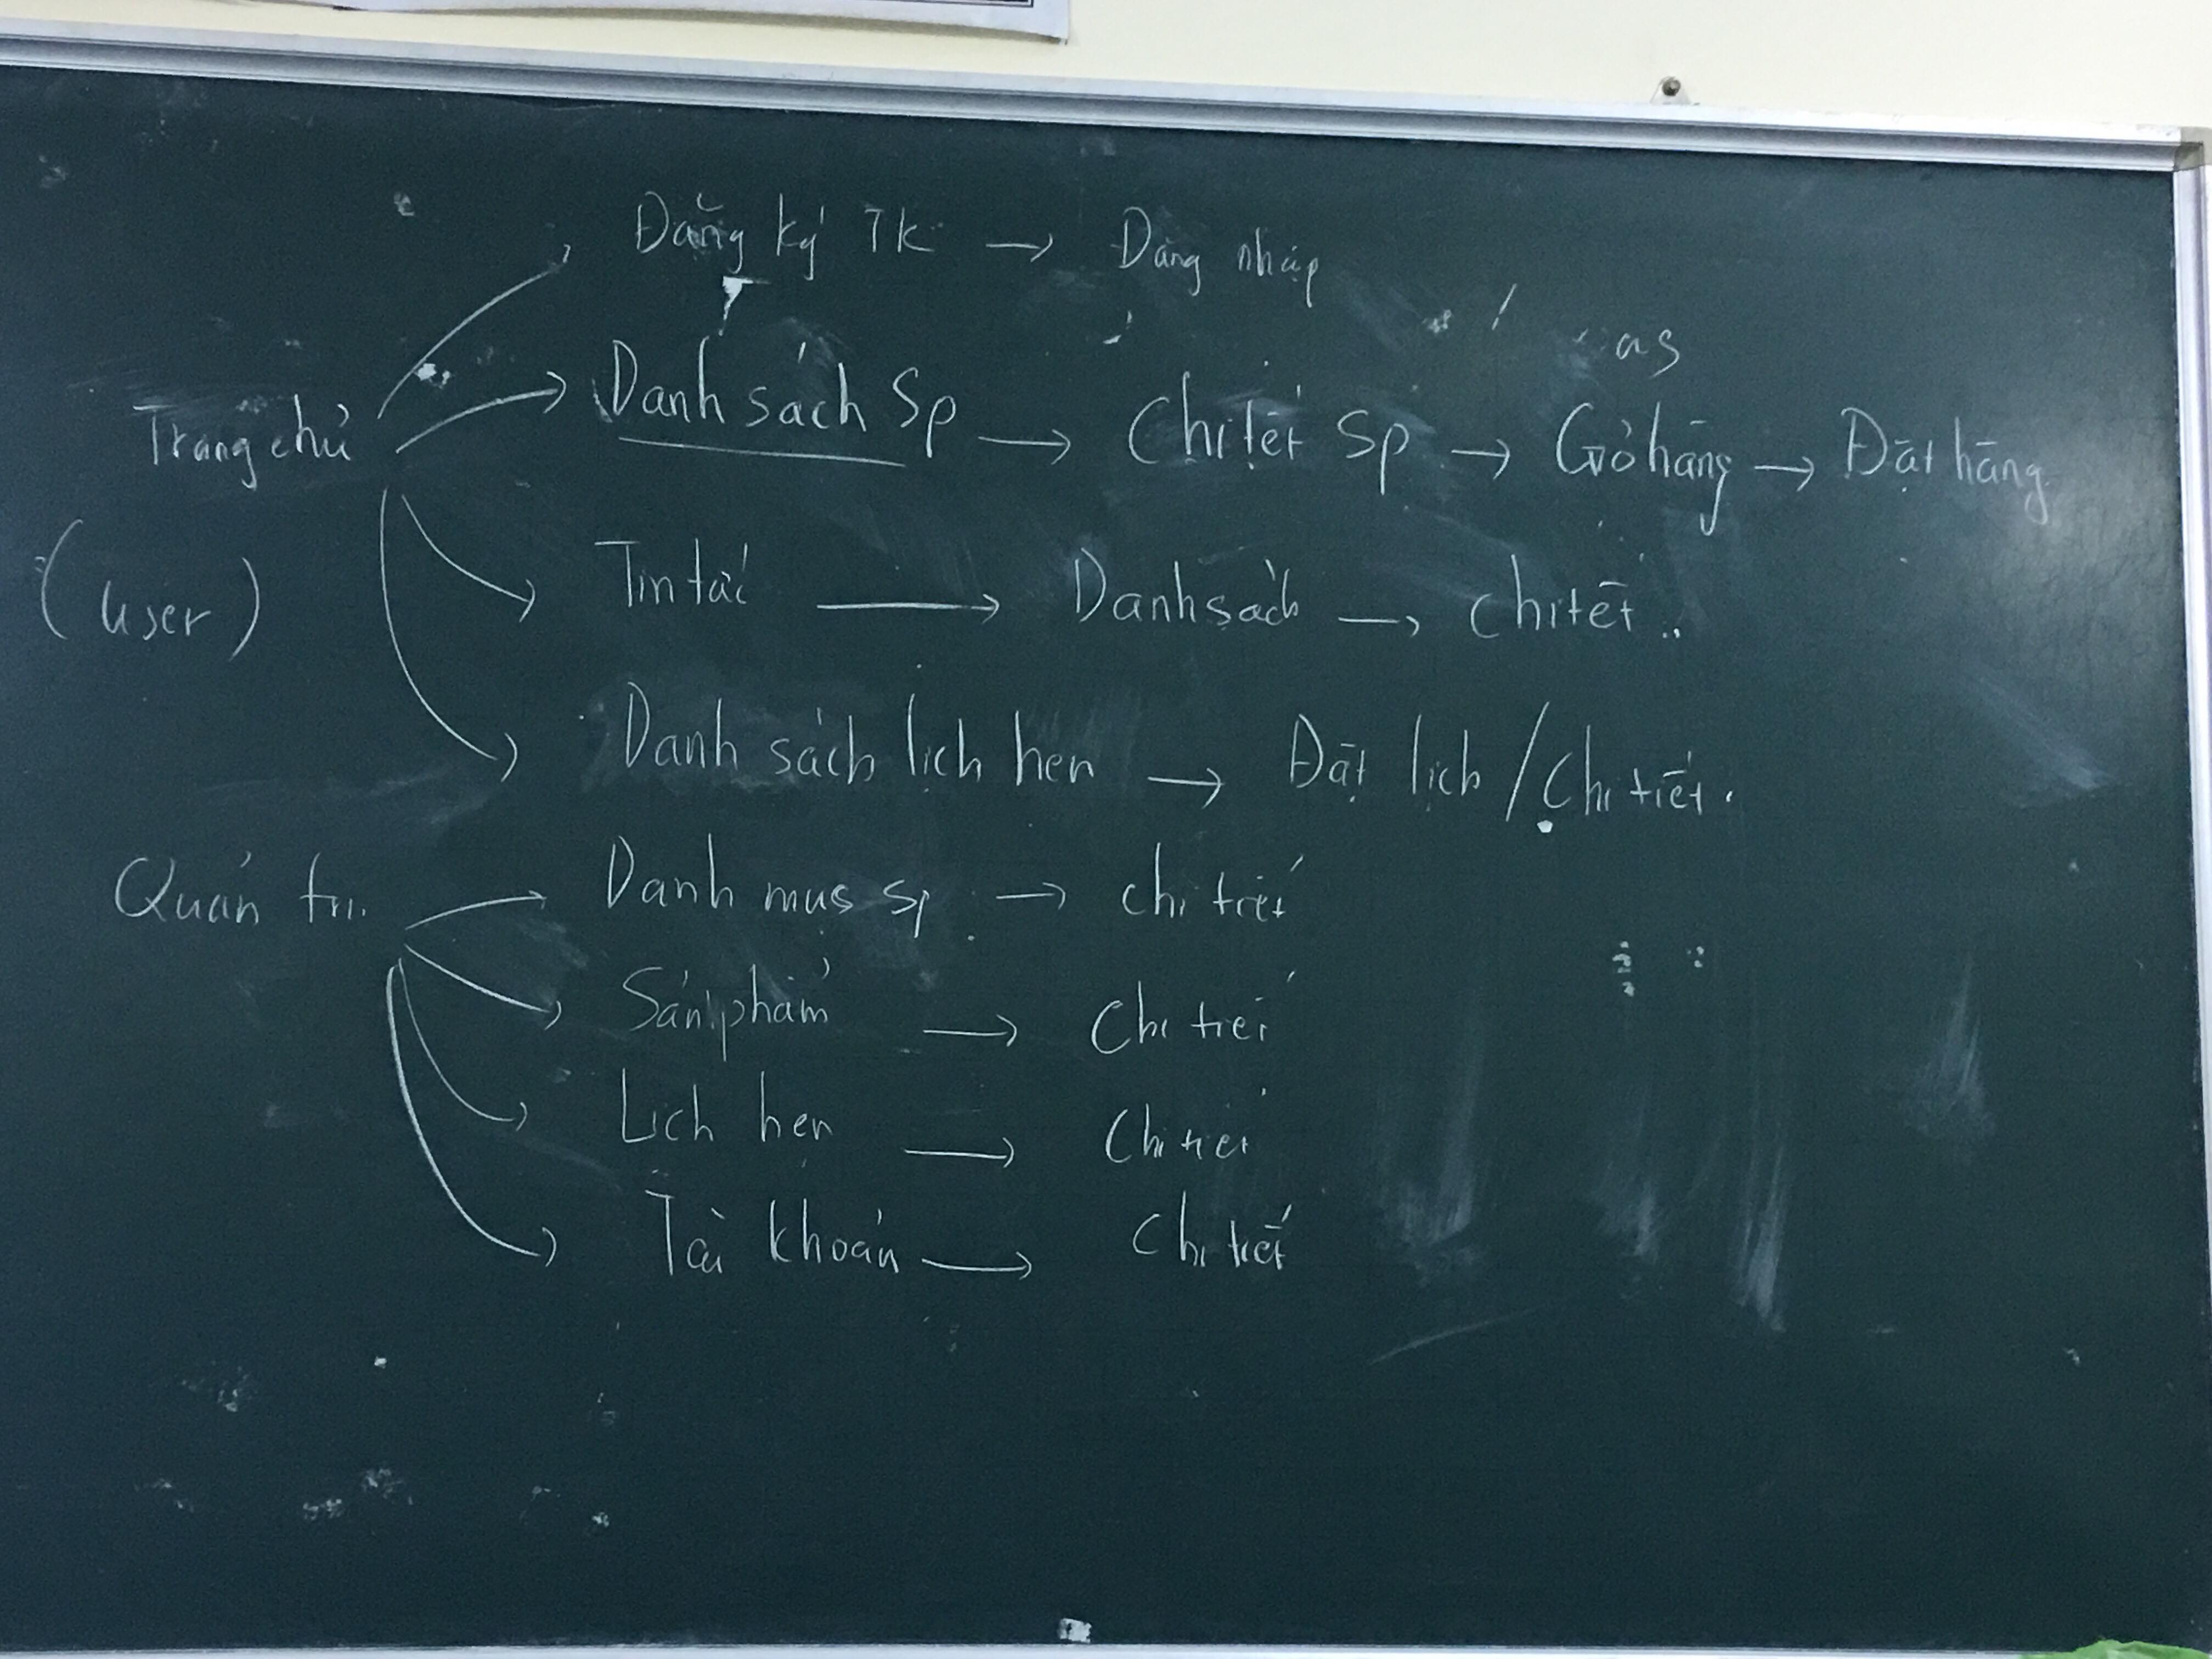 Đăng ký TK → Đăng nhập
as
Trang chủ
Danh sách Sp → Chi tết Sp → Giỏ hàng → Đặt hàng
(user)
Tin tức → Danh sách → chi tết..
Danh sách lịch hẹn → Đặt lịch / Chi tiết.
Quản trị.
Danh mục sp → chi tiết
Sản phẩm → Chi tiết
Lịch hẹn → Chi tiết
Tài khoản → Chi tiết